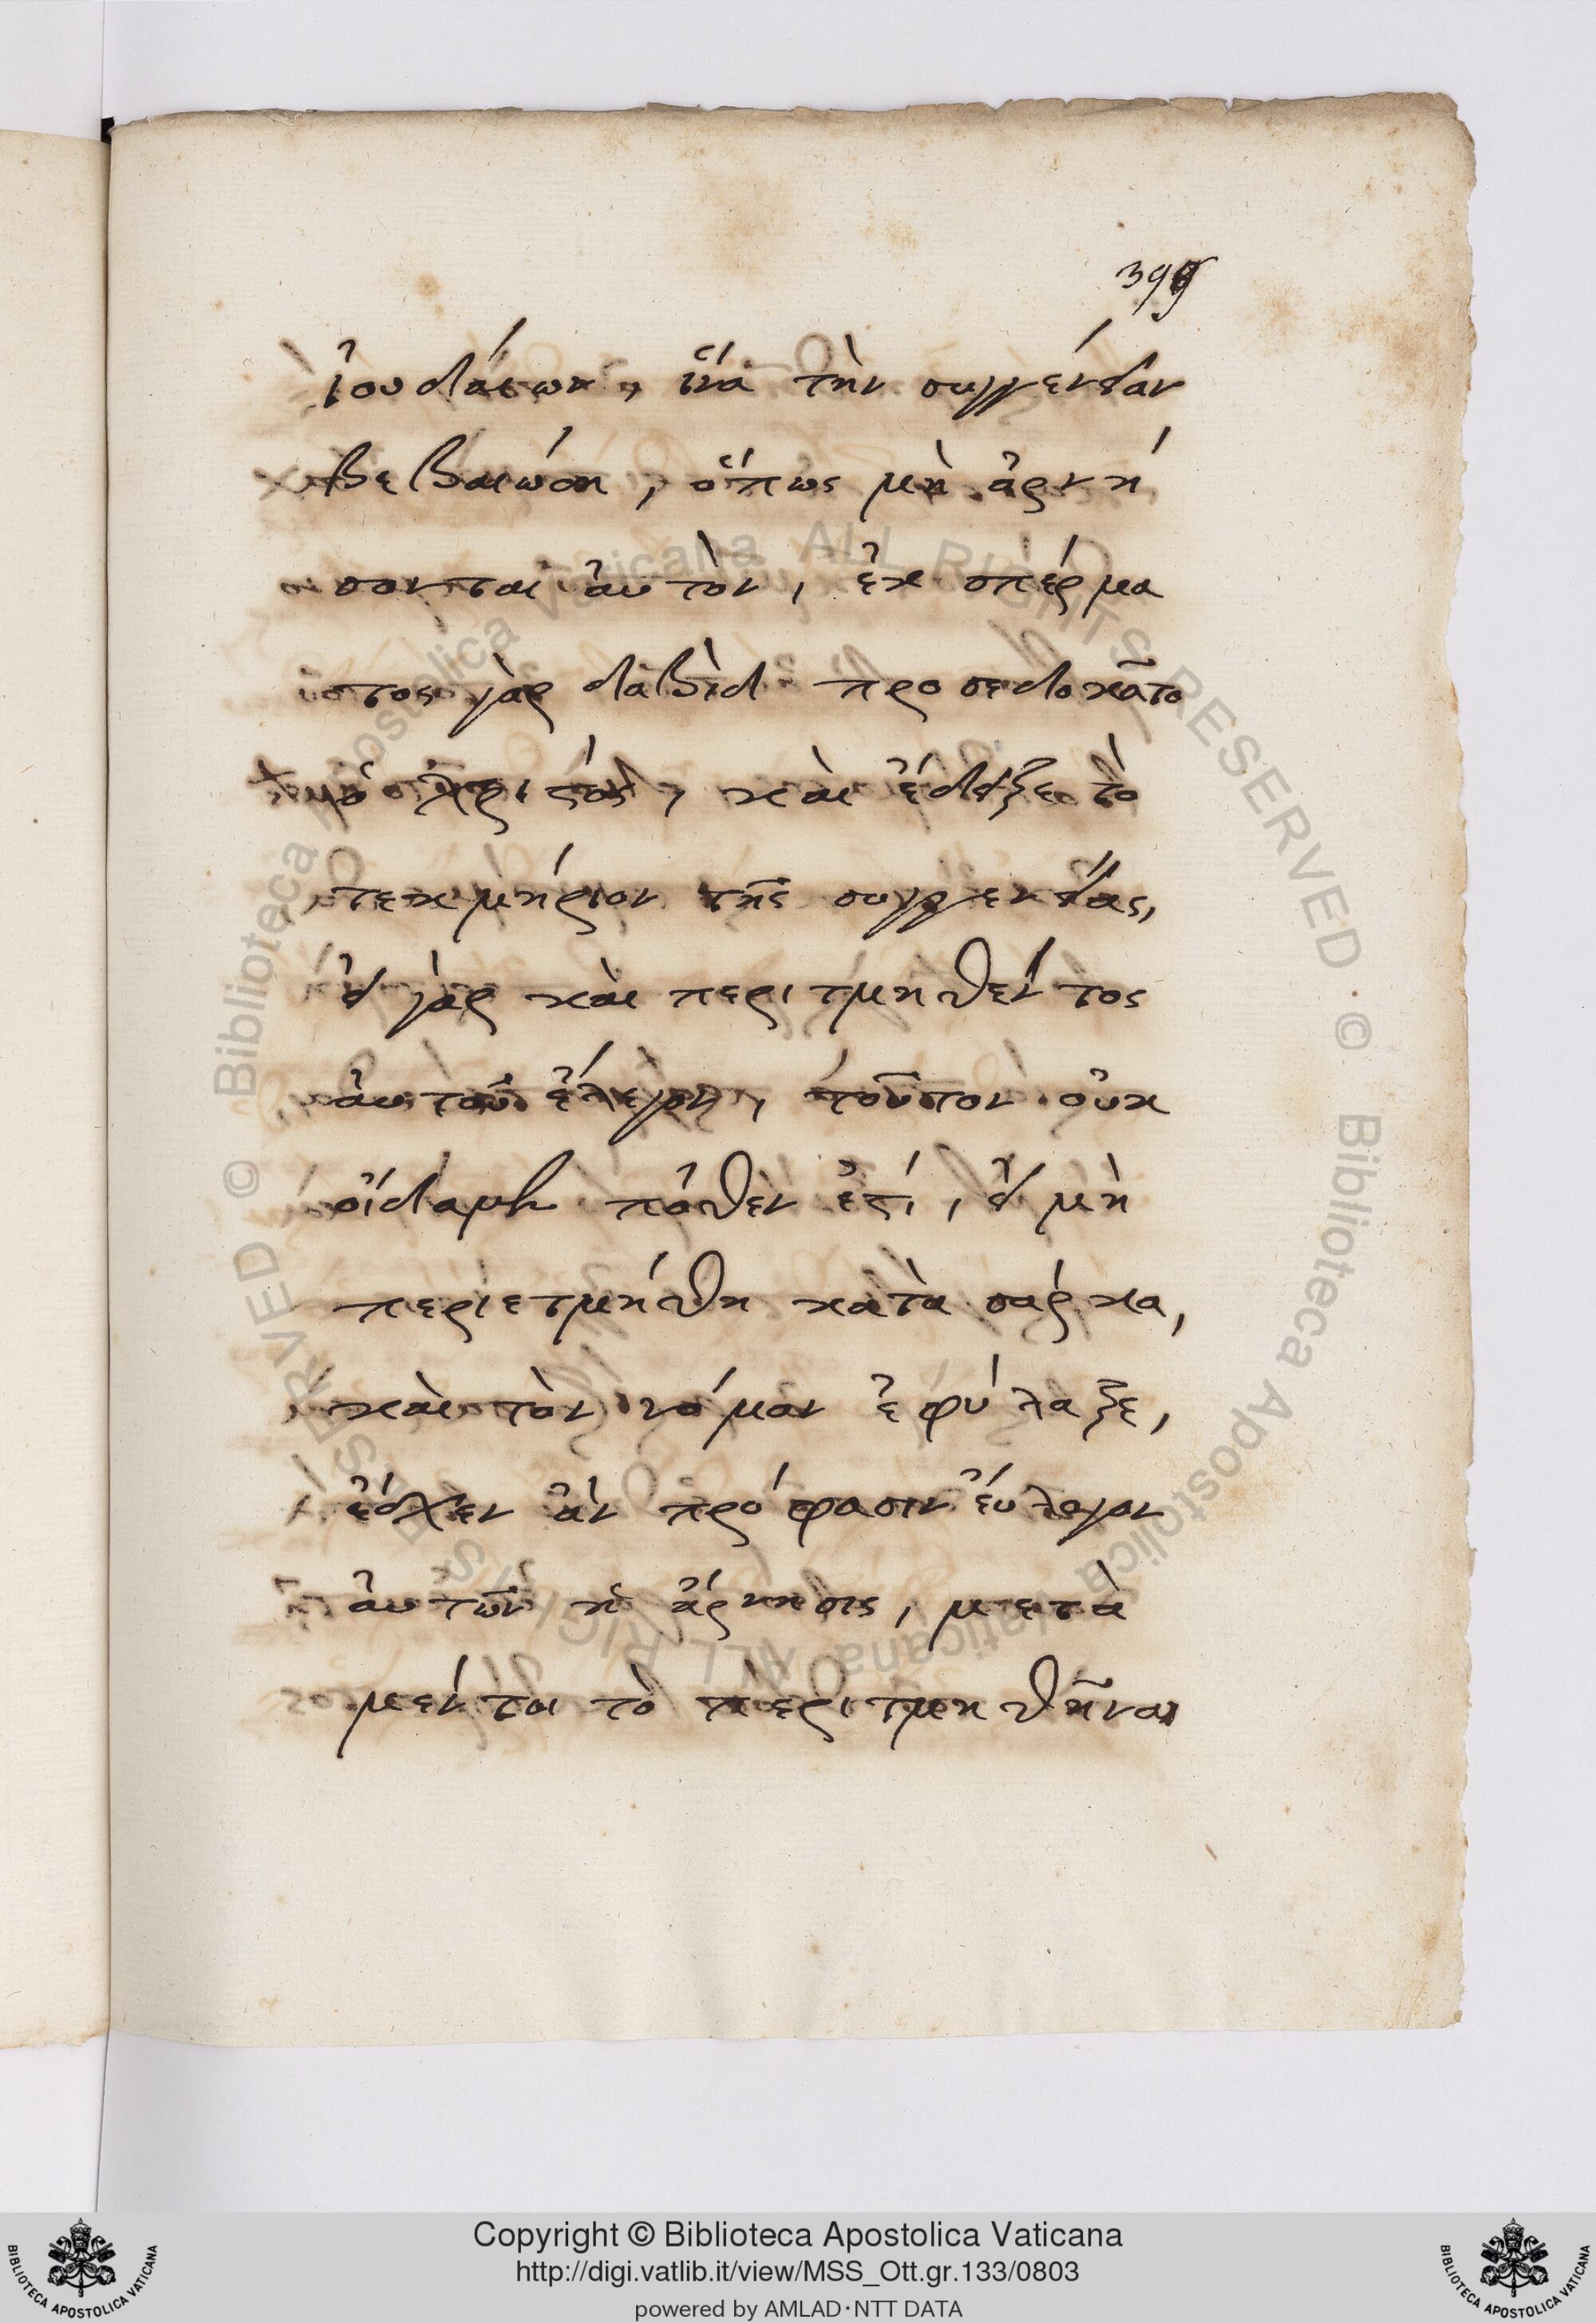 399
ἰουδαίων, ἵνα τὴν συγγένειαν
βεβαιώση, ὅπως μὴ ἀρνή
σονται ἀυτὸν, ἐκ σπέρμα
τος γὰρ δαβὶδ προσεδοκᾶτο
ὁ χριστὸς, καὶ ἔδειξε τὸ
τεκμήριον τῆς συγγενείας,
εἰ γὰρ καὶ περιτμηθέντος
ἀυτοῦ ἔλεγον, τοῦτον οὐκ
οἴδαμεν πόθεν ἐστί, εἰ μὴ
περιετμήθη κατὰ σάρκα,
καὶ τὸν νόμον ἐφύλαξε,
ἔσχεν ἂν πρόφασιν ἔυλογον
ἀυτῶν ἡ ἄρνησις, μετὰ
μέντοι τὸ περιτμηθῆναι
Copyright © Biblioteca Apostolica Vaticana
http://digi.vatlib.it/view/MSS_Ott.gr.133/0803
powered by AMLAD·NTT DATA
BIBLIOTECA APOSTOLICA VATICANA
BIBLIOTECA APOSTOLICA VATICANA
© Biblioteca Apostolica Vaticana ALL RIGHTS RESERVED · © Biblioteca Apostolica Vaticana ALL RIGHTS RESERVED